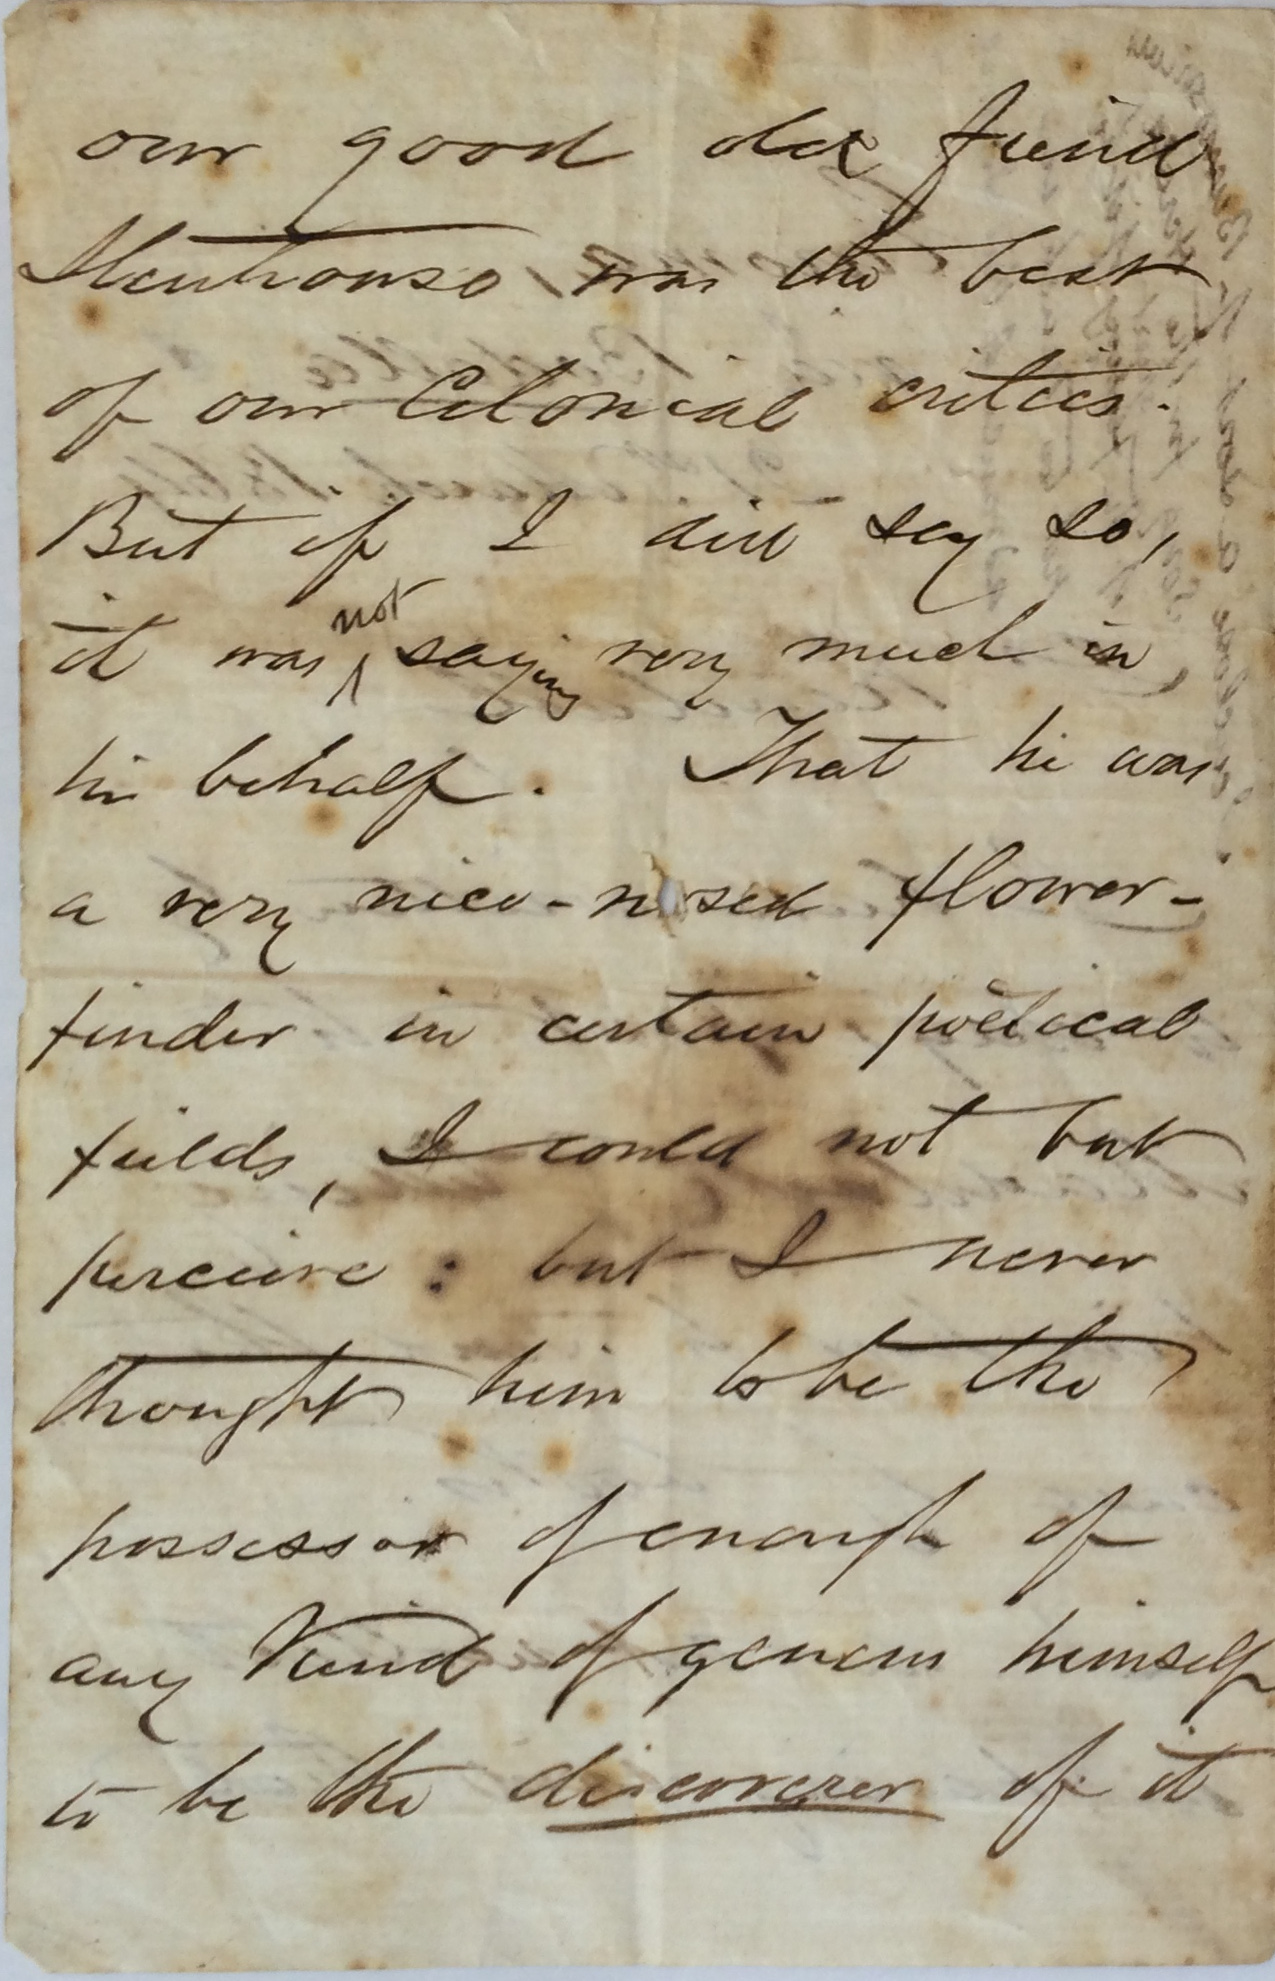 our good old friend
Stenhouse was the best
of our Colonial critics.
But if I did say so,
it was not saying very much in
his behalf. That he was
a very nice-nosed flower-
finder in certain poëtical
fields, I could not but
perceive: but I never
thought him to be the
possessor of enough of
any kind of genius himself
to be the discoverer of it